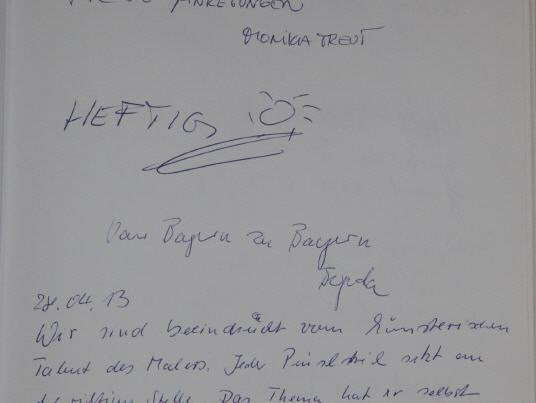 ANREGUNGEN
MONIKA TREUT
HEFTIG
Von Bayern zu Bayern
28.04.13
Wir sind beeindruckt vom künstlerischen
Talent des Malers. Jeder Pinselstrich sitzt an
der richtigen Stelle. Das Thema hat er selbst